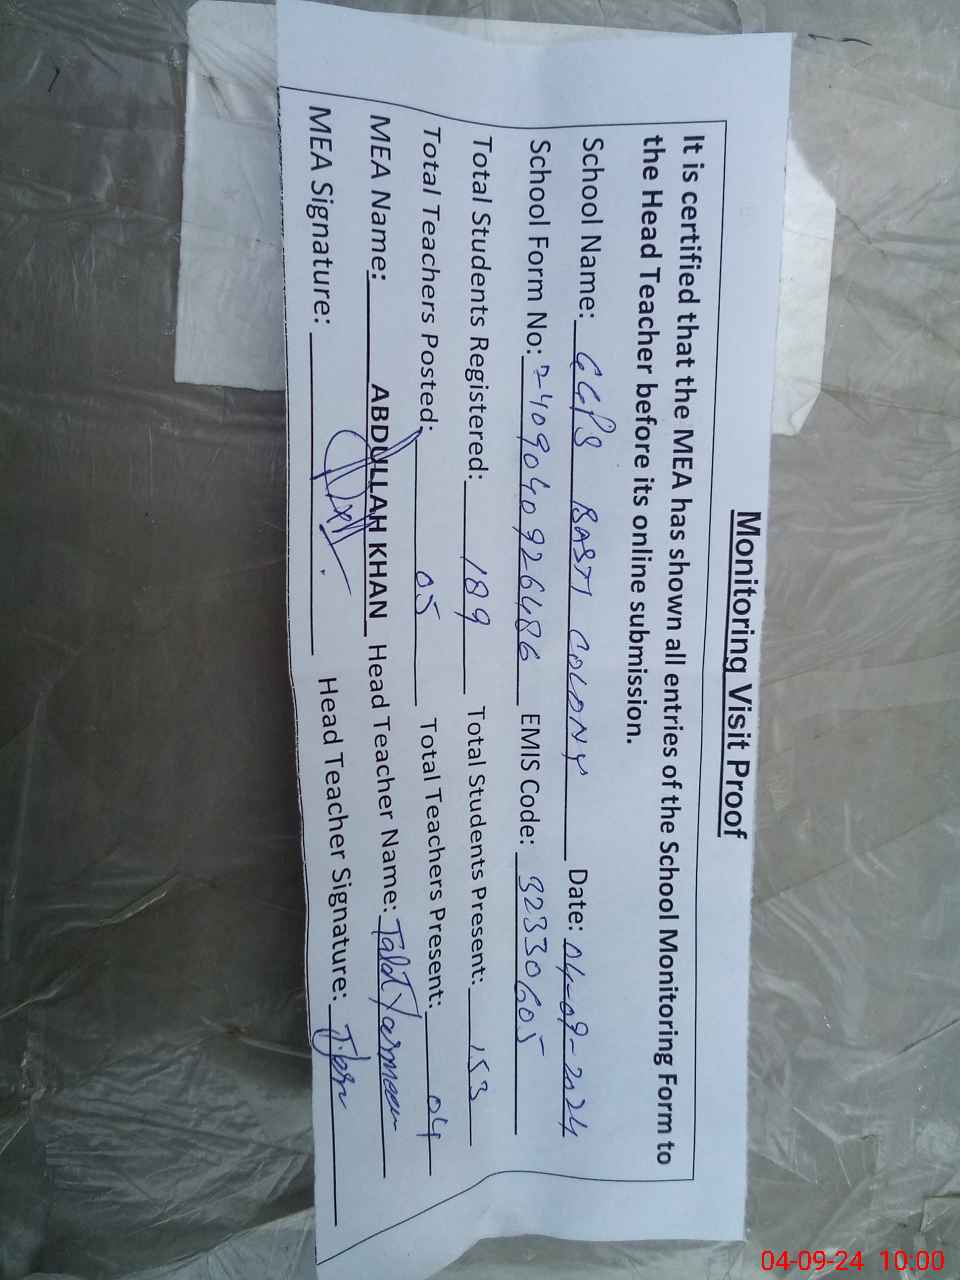 Monitoring Visit Proof
It is certified that the MEA has shown all entries of the School Monitoring Form to
the Head Teacher before its online submission.
School Name: GGPS BASTI COLONY Date: 04-09-2024
School Form No: 2409040926486 EMIS Code: 32330605
Total Students Registered: 189 Total Students Present: 153
Total Teachers Posted: 05 Total Teachers Present: 04
MEA Name: ABDULLAH KHAN Head Teacher Name: Talat Yasmeen
MEA Signature: Head Teacher Signature:
04-09-24 10:00